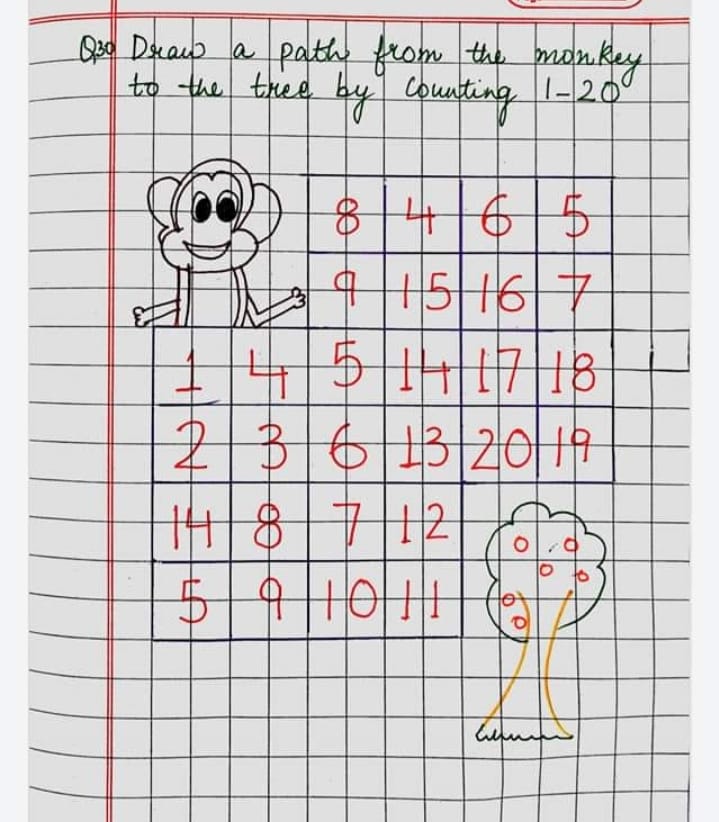 Q30 Draw a path from the monkey
to the tree by counting 1-20
8 4 6 5
9 15 16 7
1 4 5 14 17 18
2 3 6 13 20 19
14 8 7 12
5 9 10 11